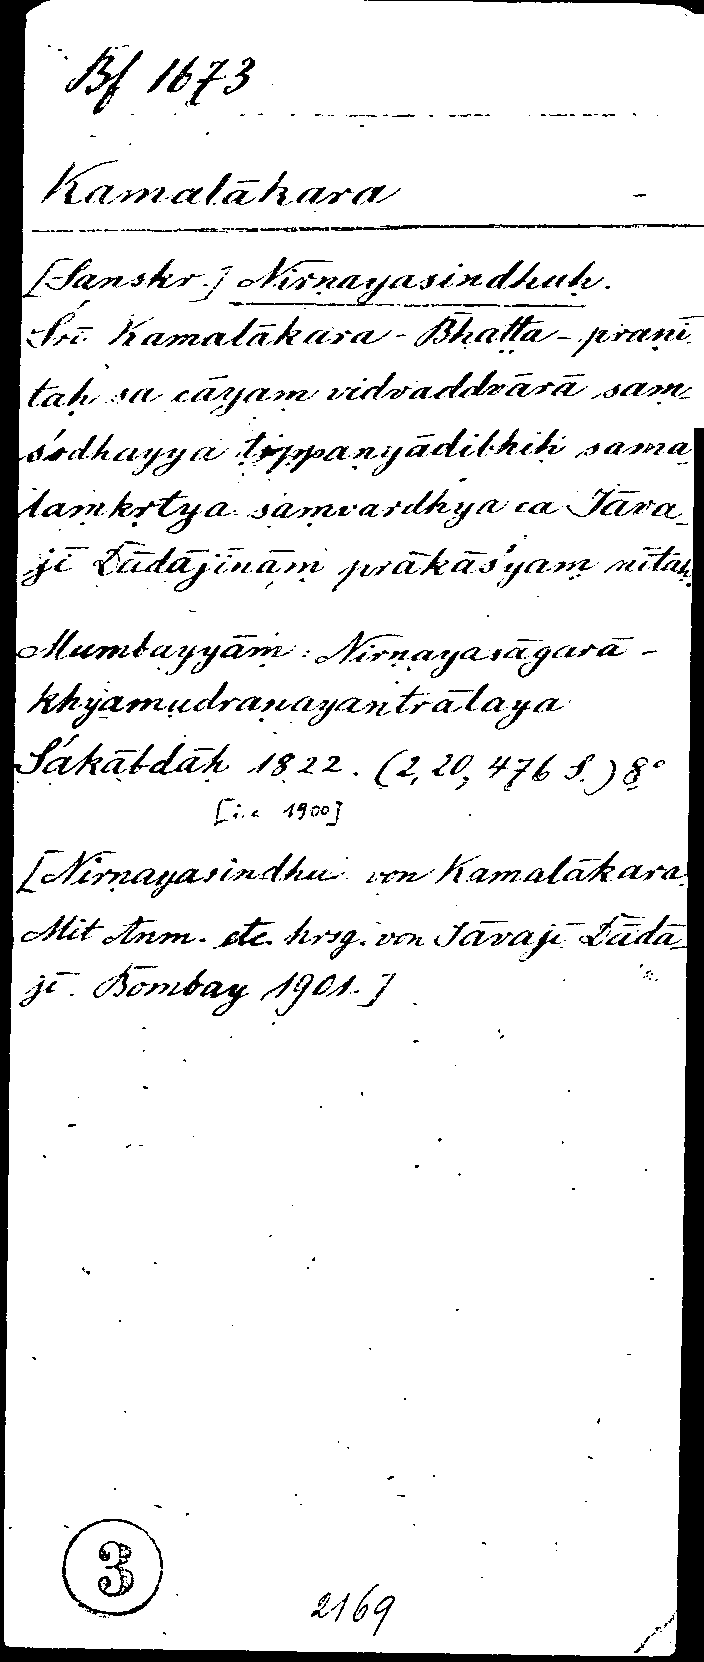 Bf 1673
Kamalākara -
[Sanskr.] Nirṇayasindhuḥ.
Śrī Kamalākara-Bhaṭṭa-praṇī
taḥ sa cāyaṃ vidvaddvārā saṃ-
śodhayya ṭippaṇyādibhiḥ sama
laṃkṛtya saṃvardhya ca Jāva-
jī Dādājīnāṃ prākāśyaṃ nītaḥ
Mumbayyāṃ: Nirṇayasāgarā-
khyamudraṇayantrālaya
Śākābdāḥ 1822. (2, 20, 476 S.) 8°
[i.e 1900]
[Nirṇayasindhu von Kamalākara.
Mit Anm. etc. hrsg. von Jāvajī Dādā-
jī. Bombay 1901.]
3
2169